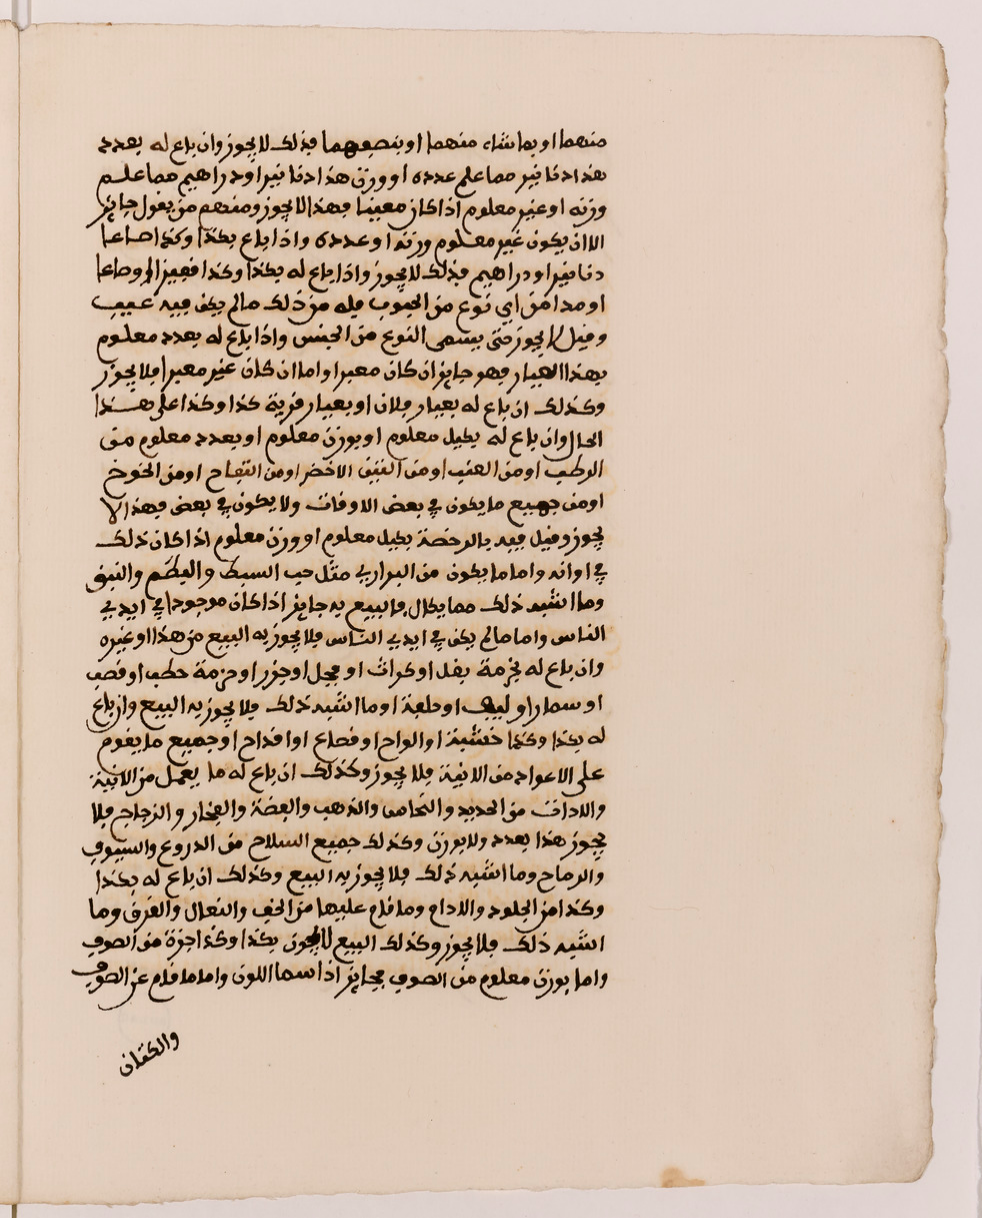 منهما او بما شاء منهما او بنصفهما فذلك لا يجوز وان باع له بعدد
هذا دنانير مما علم عدده او وزن هذا دنانير او دراهيم مما علم
وزنه او غير معلوم اذا كان معينا فهذا لا يجوز ومنهم من يقول جايز
الا ان يكون غير معلوم وزنه او عدده واذا باع بكذا وكذا صاعا
دنانير او دراهيم فذلك لا يجوز واذا باع له بكذا وكذا قفيزا او صاعا
او مدا من اي نوع من الحبوب فله من ذلك مالم يكن فيه عيب
وقيل لا يجوز حتى يسمى النوع من الجنس واذا باع له بعدد معلوم
بهذا العيار فهو جايز ان كان معبرا واما ان كان غير معبرا فلا يجوز
وكذلك ان باع له بعيار فلان او بعيار قرية كذا وكذا على هذا
الحال وان باع له بكيل معلوم او بوزن معلوم او بعدد معلوم من
الرطب او من العنب او من التين الاخضر او من التفاح او من الخوخ
او من جميع ما يكون في بعض الاوقات ولا يكون في بعض فهذا لا
يجوز وقيل فيه بالرخصة بكيل معلوم او وزن معلوم اذا كان ذلك
في اوانه واما ما يكون من البراري مثل حب السبط والبطم والنبق
وما اشبه ذلك مما يكال فالبيع به جايز اذا كان موجودا في ايدي
الناس واما مالم يكن في ايدي الناس فلا يجوز به البيع من هذا او غيره
وان باع له بحزمة بقل او كراث او فجل او جزر او حزمة حطب او قصب
او سمار او ليف او حلفة او ما اشبه ذلك فلا يجوز به البيع وان باع
له بكذا وكذا خشبة او الواح او قصاع او اقداح او جميع ما يقوم
على الاعواد من الانية فلا يجوز وكذلك ان باع له ما يعمل من الانية
والادات من الحديد والنحاس والذهب والفضة والفخار والزجاج فلا
يجوز هذا بعدد ولا بوزن وكذلك جميع السلاح من الدروع والسيوف
والرماح وما اشبه ذلك فلا يجوز به البيع وكذلك ان باع له بكذا
وكذا من الجلود والادام وما قام عليها من الخف والنعال والقرق وما
اشبه ذلك فلا يجوز وكذلك البيع لا يجوز بكذا وكذا جزة من الصوف
واما بوزن معلوم من الصوف فجايز اذا سما اللون واما ما قام عن الصوف
والكتان